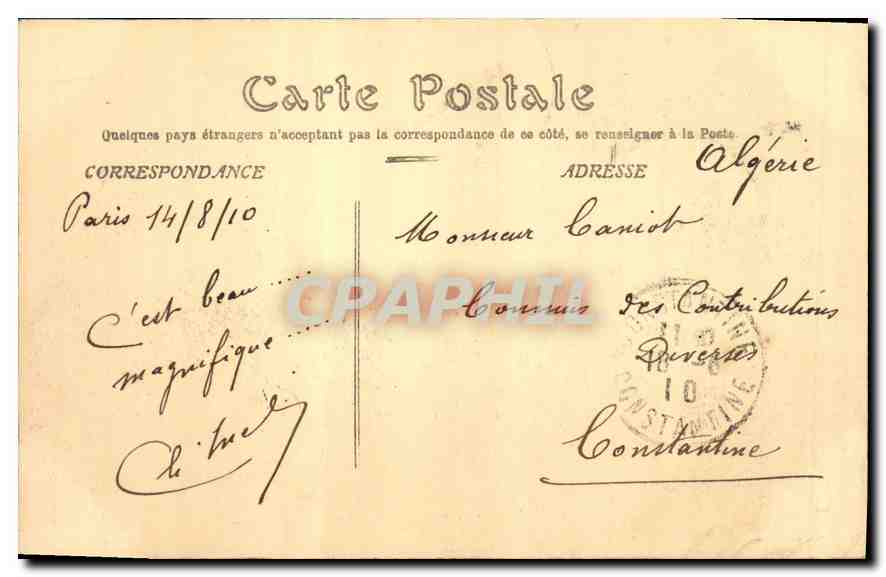 Carte Postale
Quelques pays étrangers n'acceptant pas la correspondance de ce côté, se renseigner à la Poste.
CORRESPONDANCE
Paris 14/8/10
C'est beau.....
magnifique.....
ADRESSE
Algérie
Monsieur Caniot
Commis des Contributions
Diverses
Constantine
CONSTANTINE
CONSTANTINE
10
CPAPHIL